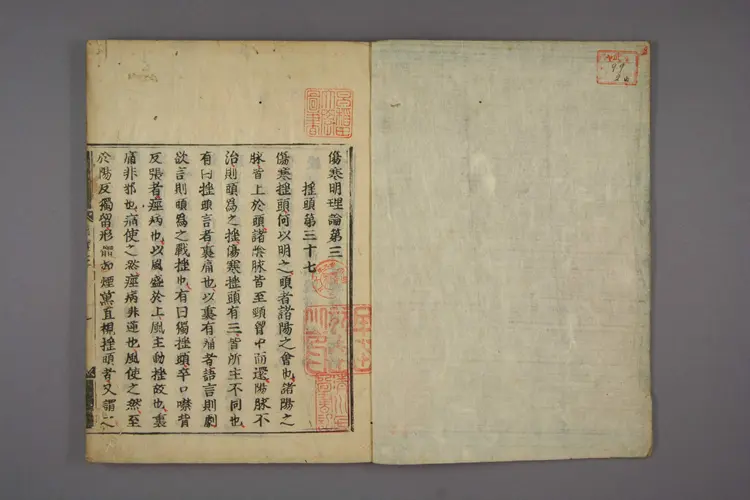 早稻田大學圖書
傷寒明理論第三
搖頭第三十七
傷寒搖頭何以明之頭者諸陽之會也諸陽之
脉皆上於頭諸陰脉皆至頸胷中而還陽脉不
治則頭爲之搖傷寒搖頭有三皆所主不同也
有曰搖頭言者裏痛也以裏有痛者語言則劇
欲言則頭爲之戰搖也有曰獨搖頭卒口噤背
反張者痙病也以風盛於上風主動搖故也裏
痛非邪也痛使之然痙病非逆也風使之然至
於陽反獨留形體如煙薰直視搖頭者又謂之